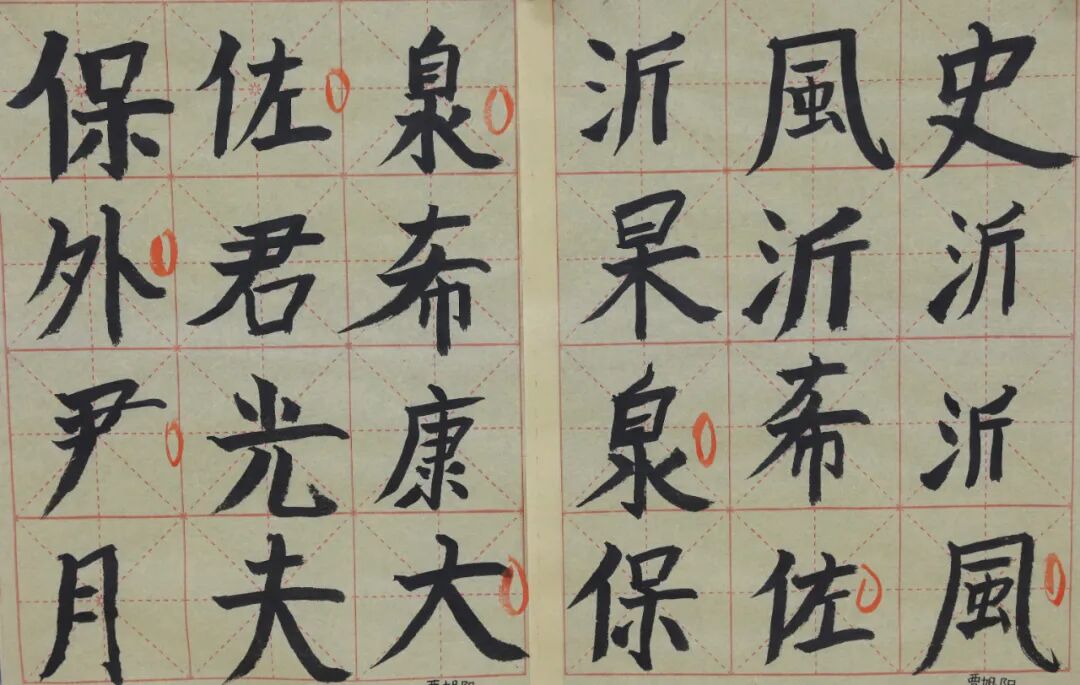 史沂沂風
風沂希佐
沂杲泉保
泉希康大
佐君光夫
保外尹月